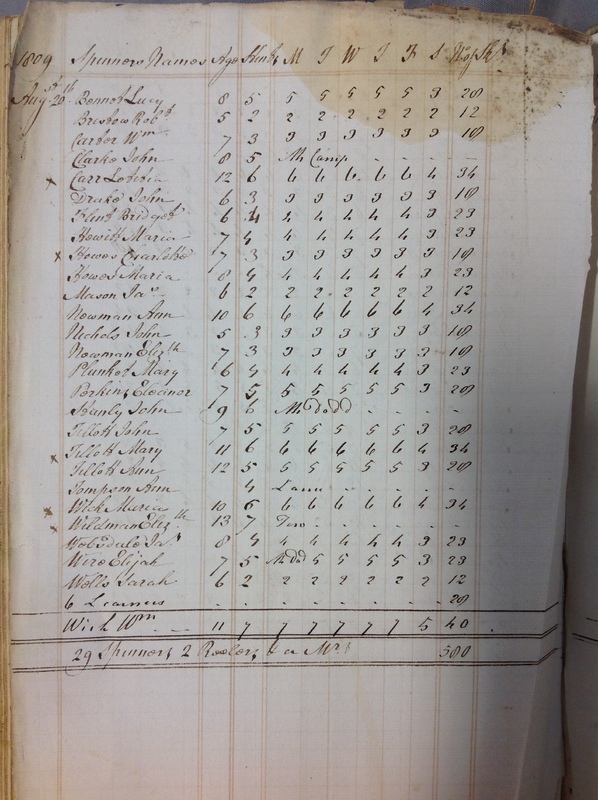 1809 Spinners Names Age M T W T F S
Augst 20th Bennet Lucy 8 5 5 5 5 5 5 3 28
Bristow Robt 5 2 2 2 2 2 2 2 12
Carter Wm 7 3 3 3 3 3 3 3 18
Clarke John 8 5 Mr Camp - - - -
x Carr Letitia 12 6 6 6 6 6 6 4 34
Drake John 6 3 3 3 3 3 3 3 18
Flint Bridget 6 4 4 4 4 4 4 3 23
Hewitt Maria 7 4 4 4 4 4 4 3 23
x Howes Charlotte 7 3 3 3 3 3 3 3 18
Howes Maria 8 4 4 4 4 4 4 3 23
Mason Jas 6 2 2 2 2 2 2 2 12
Newman Ann 10 6 6 6 6 6 6 4 34
Nichols John 5 3 3 3 3 3 3 3 18
Newman Elizth 7 3 3 3 3 3 3 3 18
Plunket Mary 6 4 4 4 4 4 4 3 23
Perkins Eleoinor 7 5 5 5 5 5 5 3 28
Stanly John 9 6 - - - -
Tillott John 7 5 5 5 5 5 5 3 28
x Tillott Mary 11 6 6 6 6 6 6 4 34
Tillott Ann 12 5 5 5 5 5 5 3 28
Tompson Ann 4 Lame - - - -
x Wick Maria 10 6 6 6 6 6 6 4 34
x Wildman Elizth 13 7 - - - -
Jas 8 4 4 4 4 4 4 3 23
Wire Elijah 7 5 5 5 5 5 3 23
Wells Sarah 6 2 2 2 2 2 2 2 12
6 Learners - - - - - - 28
Wick Wm 11 7 7 7 7 7 7 5 40
29 Spinners 2 Reelers & a Mrs 580